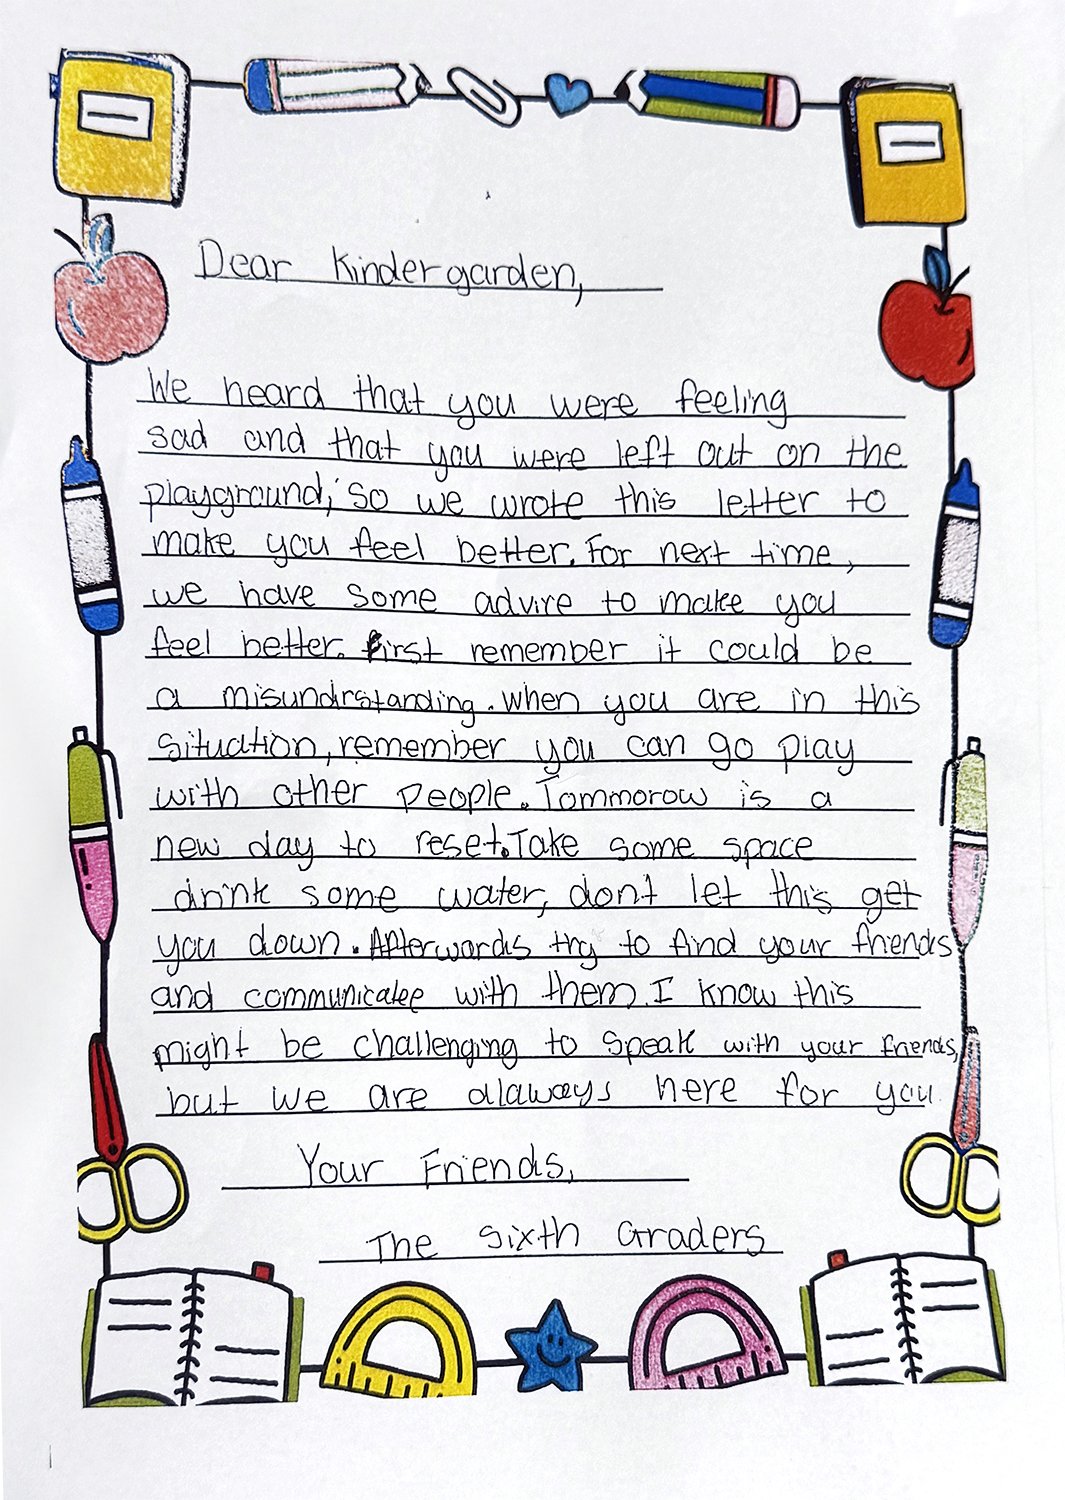 Dear Kindergarden,
We heard that you were feeling
sad and that you were left out on the
playground, so we wrote this letter to
make you feel better. For next time,
we have some advire to make you
feel better. First remember it could be
a misundrstanding. When you are in this
situation, remember you can go play
with other people. Tommorow is a
new day to reset. Take some space
drink some water, don't let this get
you down. Afterwords try to find your friends
and communicatee with them. I know this
might be challenging to speak with your friends,
but we are allaways here for you.
Your Friends,
The Sixth Graders